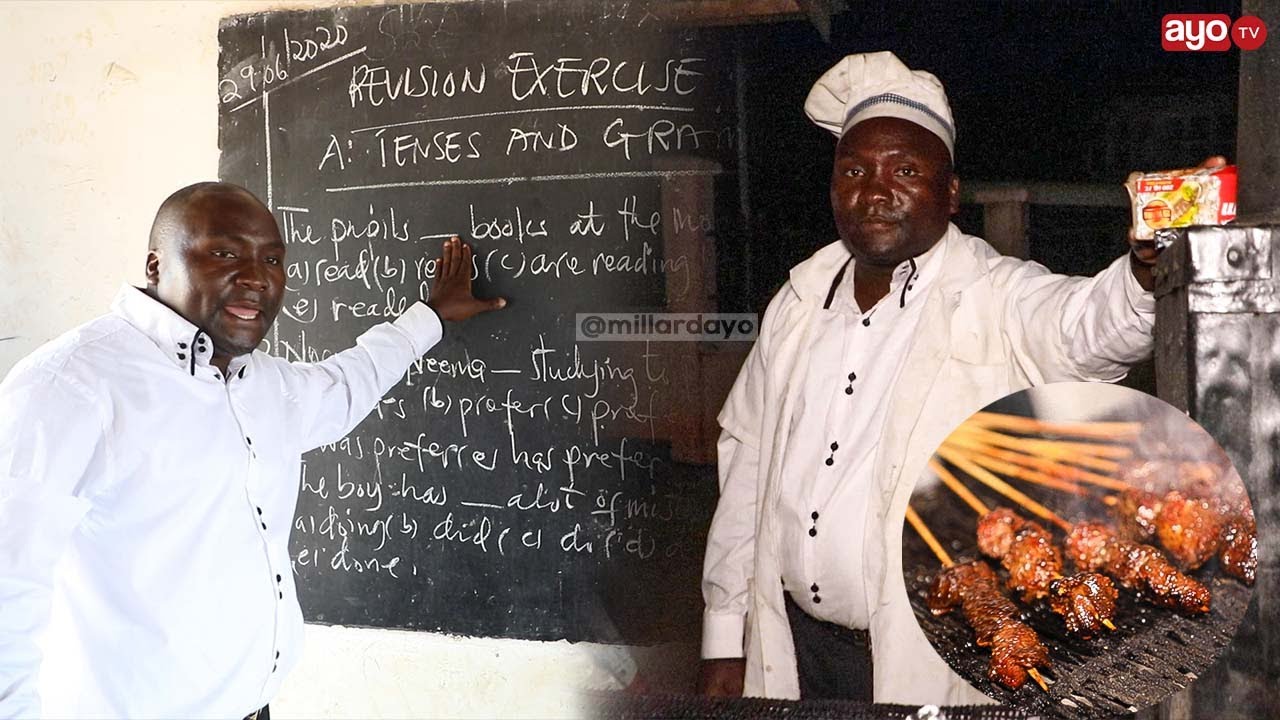 ayo TV
29/06/2020
REVISION EXERCISE
A: TENSES AND GRA
The pupils __ books at the
a) read (b) re s (c) are reading
e) readed
@millardayo
reema _ studying to
(b) prefer (c) pref
was preferr e) has prefer
The boy has __ alot of mis
a) doing (b) did (c) do (d)
e) done.